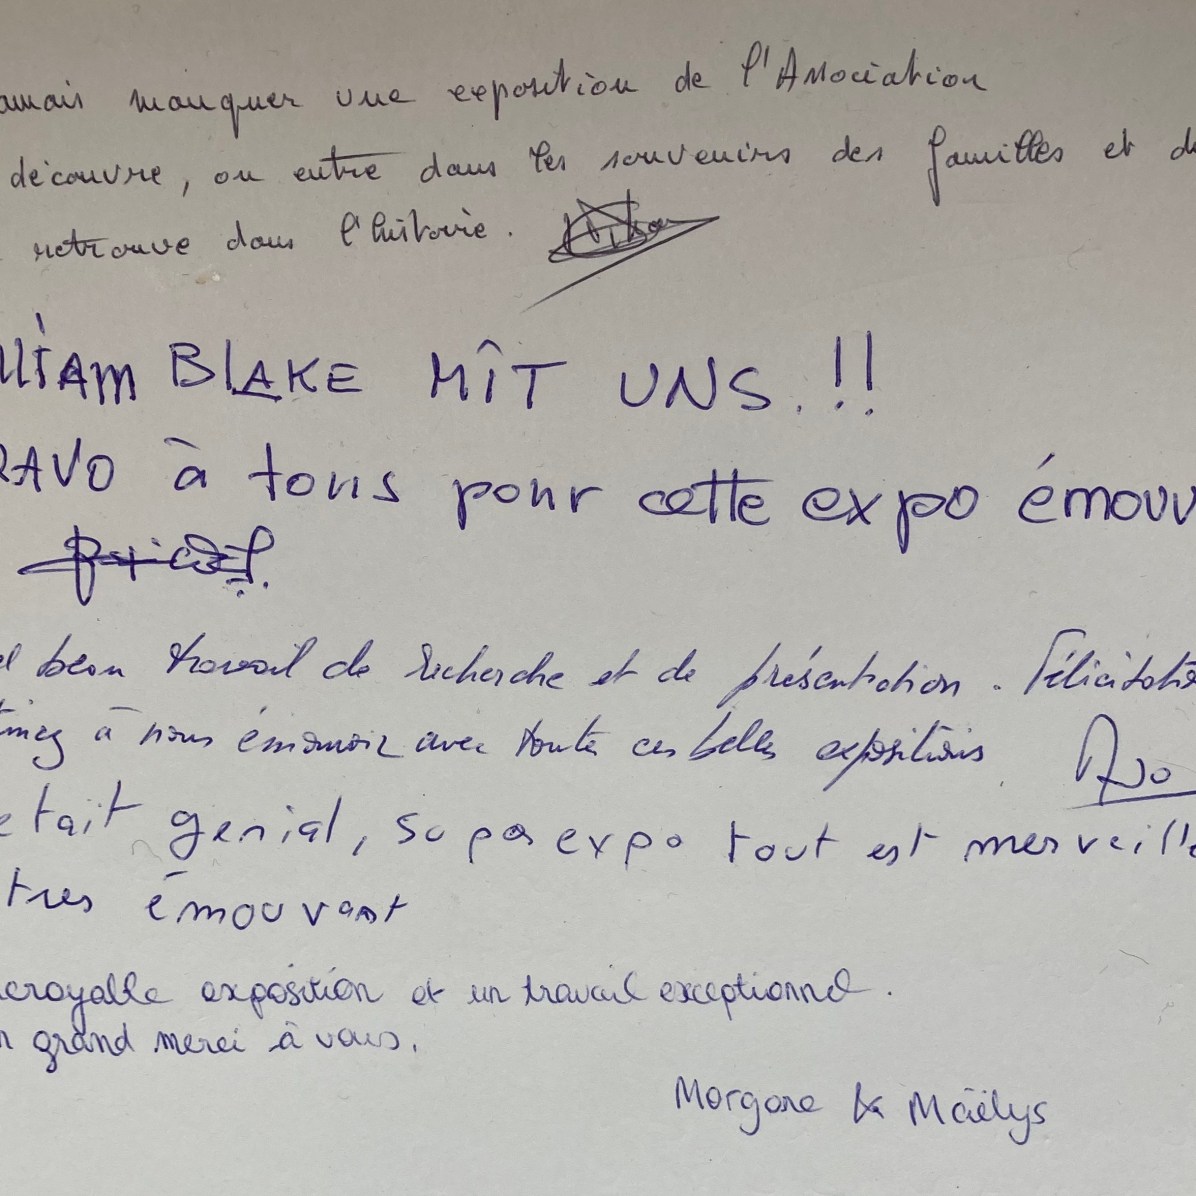 amais manquer une exposition de l'Association
découvre, on entre dans les souvenirs des familles et de
retrouve dans l'histoire.
lliam BLAKE MÎT UNS.!!
RAVO à tous pour cette expo émouv
el beau travail de recherche et de présentation. Félicitatio
tinuez à nous émouvoir avec toutes ces belles expositions
etait genial, super expo tout est merveille
tres émouvant
croyable exposition et un travail exceptionnel.
n grand merci à vous.
Morgane & Maëlys